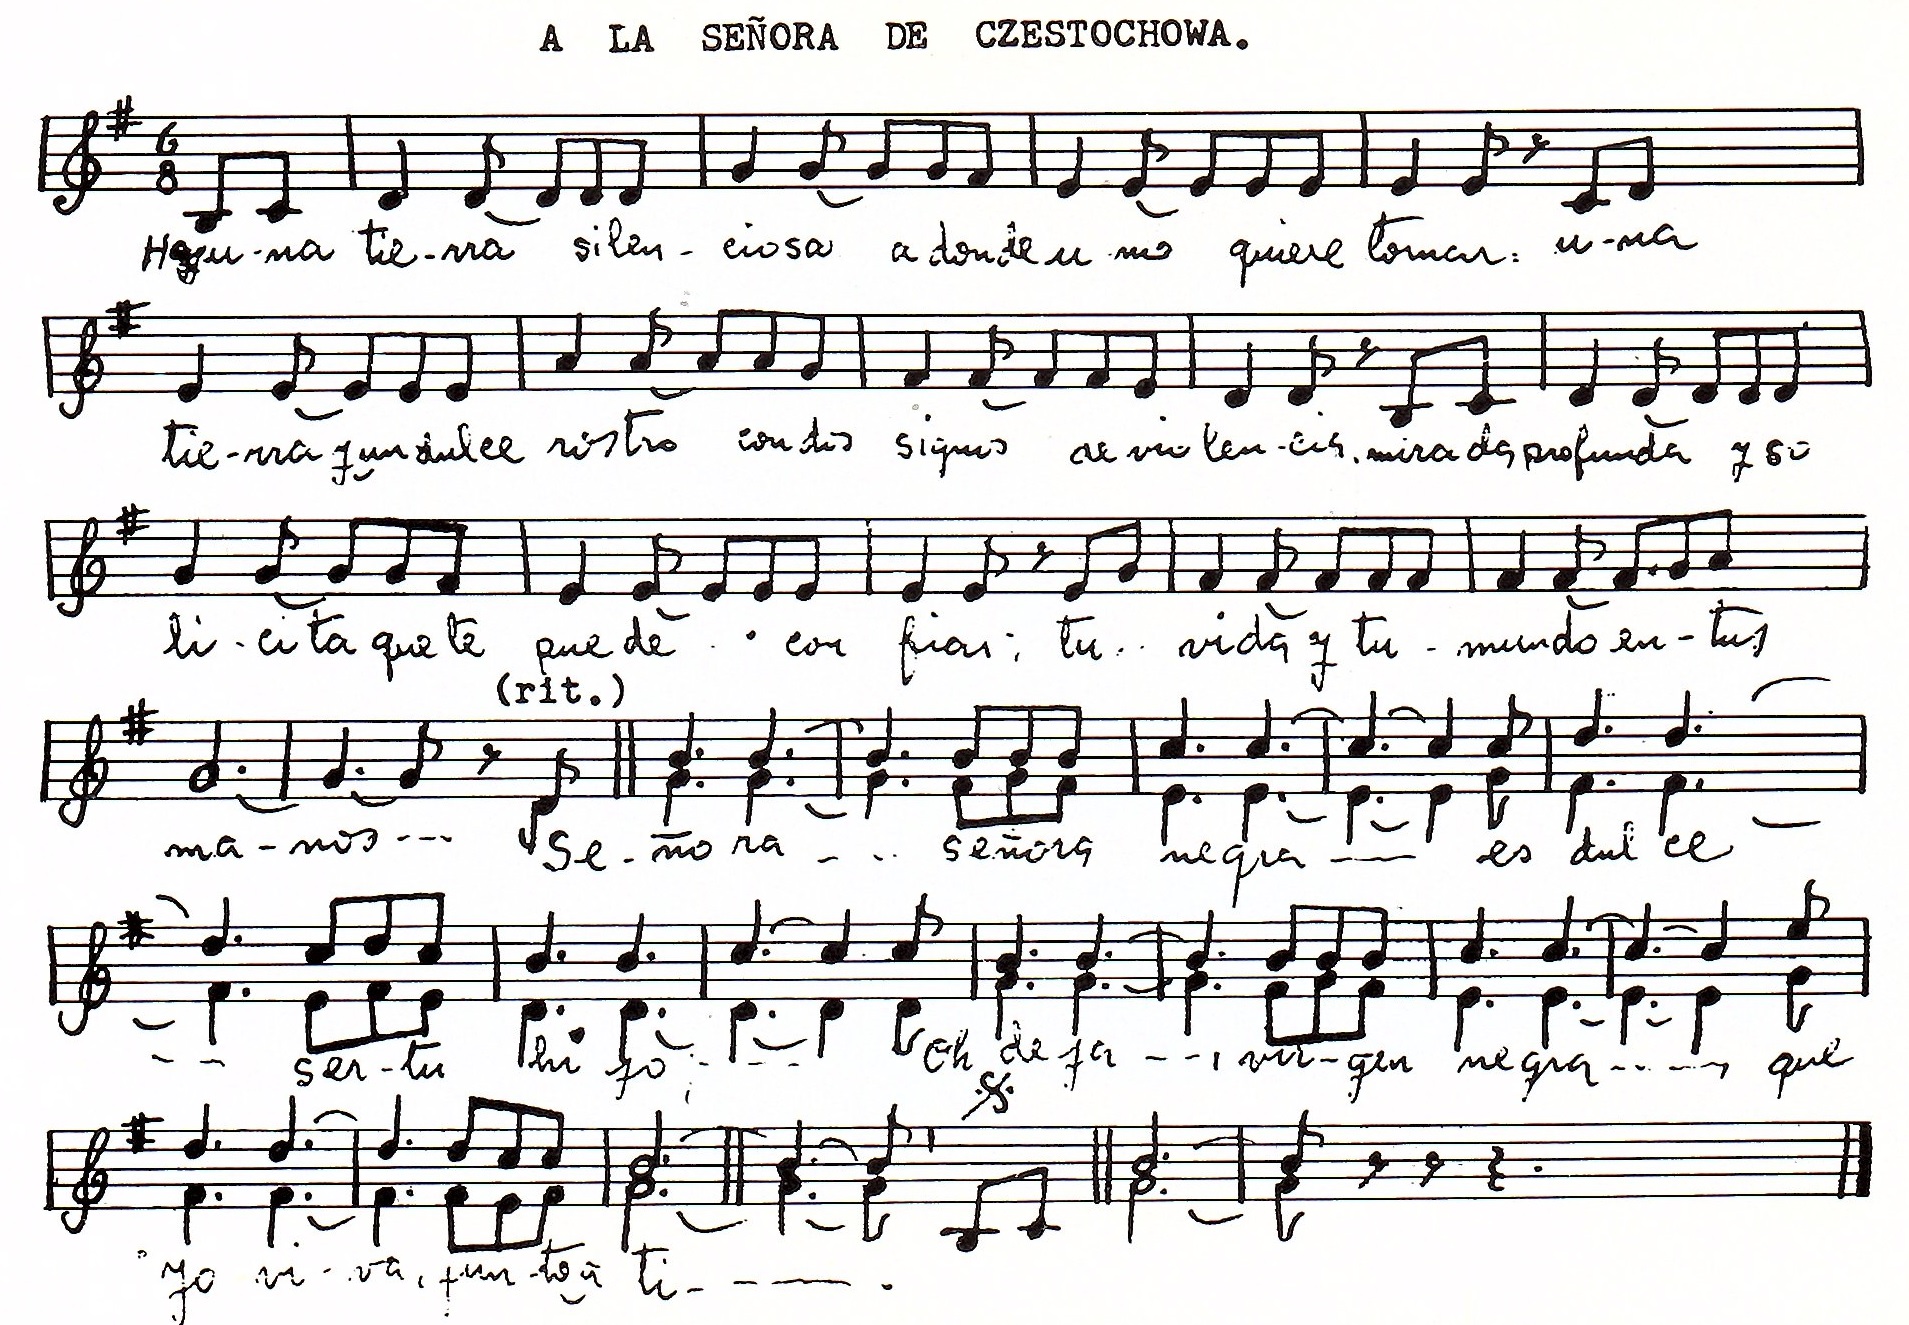 A LA SEÑORA DE CZESTOCHOWA.
6
8
Hay u-na tie-rra silen-ciosa a donde uno quiere tornar: u-na
tie-rra y un dulce rostro con dos signos de violen-cia. mirada profunda y so
li-cita que te puede con fiar; tu vida y tu-mundo en-tus
(rit.)
ma-nos--- Se-ñora -.. señora negra --- es dulce
-- ser-tu hijo ---- Oh deja --, vir-gen negra----, que
yo vi-va, jun-to a ti- - ---.